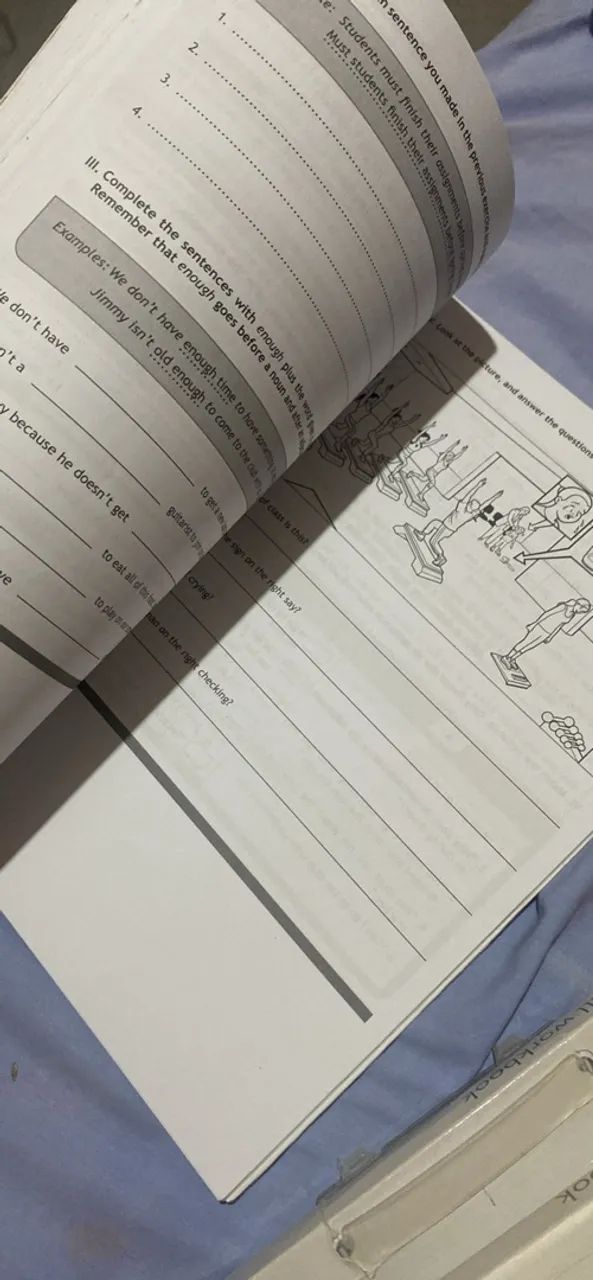 n sentence you made in the previous exercise
Students must finish their assignments before
Must students finish their assignments before
1.
2.
3.
4.
III. Complete the sentences with enough plus the word
Remember that enough goes before a noun and after
Examples: We don't have enough time to have
Jimmy isn't old enough to come to the club
e don't have
to get a
n't a
guitarist to
y because he doesn't get
to eat all of the
ve
to play
Look at the picture, and answer the questions
of class is this?
sign on the right say?
crying?
an on the right checking?
workbook
ok